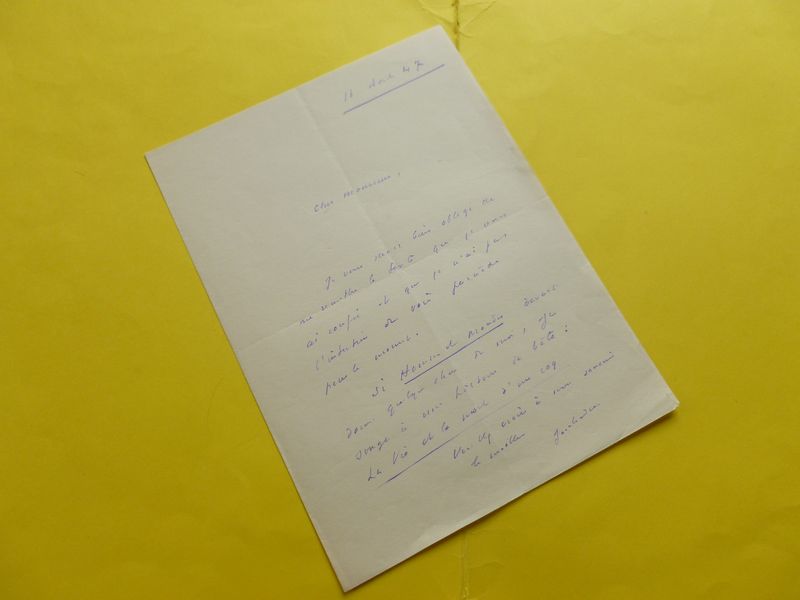 16 Août 47
Cher Monsieur,
Je vous serais bien obligé de
me remettre le texte que je vous
ai confié et que je n'ai pas
l'intention de voir paraître
pour le moment.
Si Hommes et Mondes devait
donner quelque chose de moi,
songe à une histoire de bête :
La Vie et la mort d'un coq
Veuillez croire à mon souvenir
le meilleur